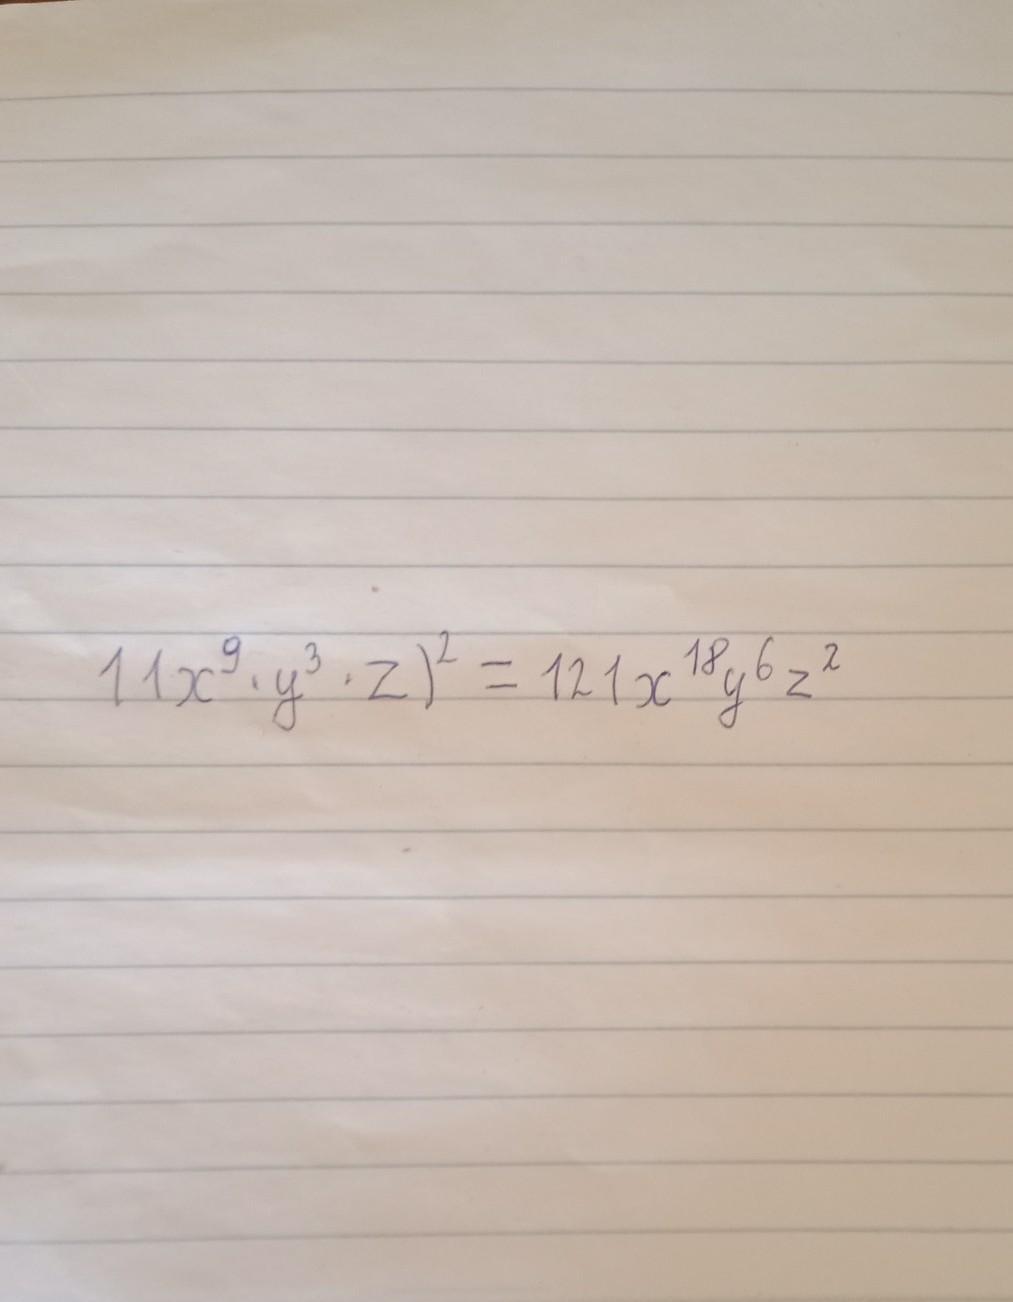 11x⁹·y³·z)² = 121x¹⁸y⁶z²